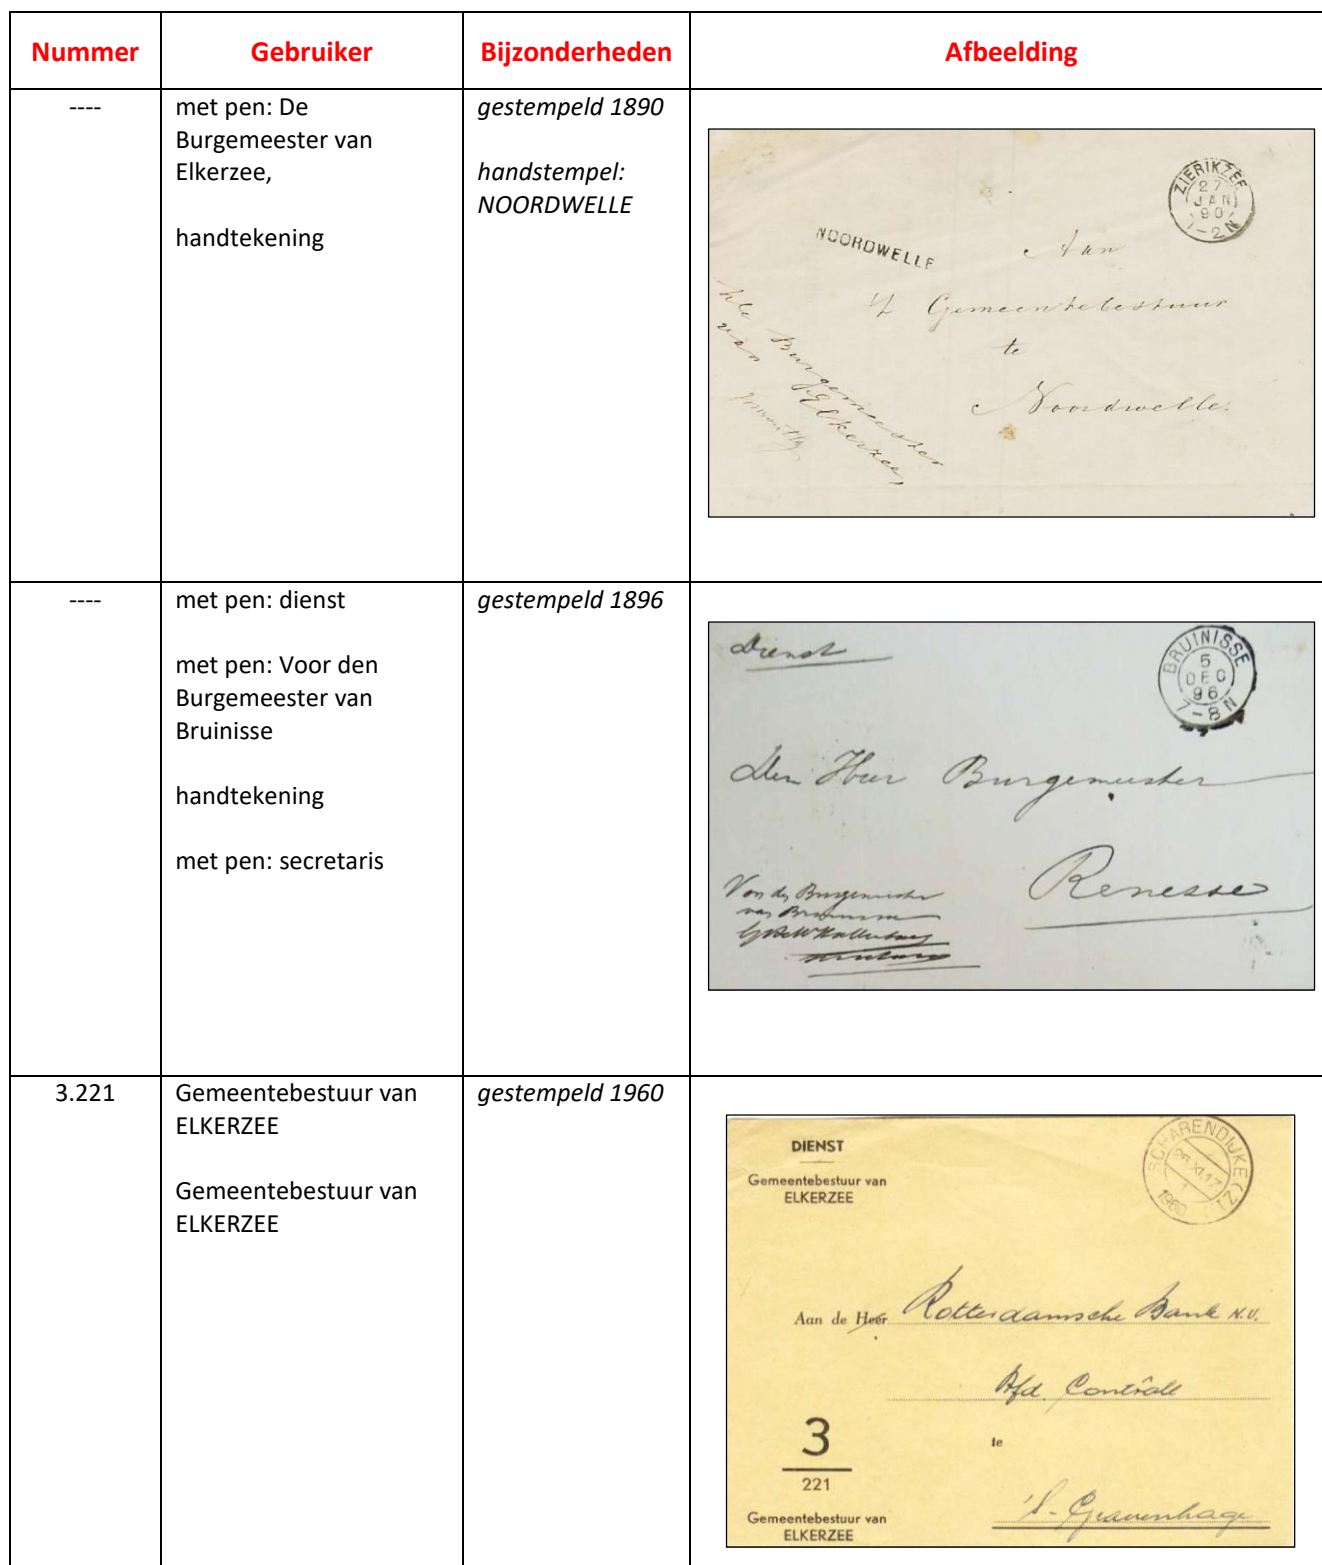 Nummer
Gebruiker
Bijzonderheden
Afbeelding
----
met pen: De
Burgemeester van
Elkerzee,
handtekening
gestempeld 1890
handstempel:
NOORDWELLE
ZIERIKZEE
27
JAN
90
1-2N
NOORDWELLE
Aan
't Gemeentebestuur
te
Noordwelle.
De Burgemeester
van Elkerzee,
----
met pen: dienst
met pen: Voor den
Burgemeester van
Bruinisse
handtekening
met pen: secretaris
gestempeld 1896
Dienst
BRUINISSE
5
DEC
96
7-8N
Den Heer Burgemeester
Renesse
Voor den Burgemeester
van Bruinisse
secretaris
3.221
Gemeentebestuur van
ELKERZEE
Gemeentebestuur van
ELKERZEE
gestempeld 1960
DIENST
Gemeentebestuur van
ELKERZEE
SCHARENDIJKE (Z)
25.XI.17
1960
Aan de Heer Rotterdamsche Bank N.V.
Afd. Contrôle
3
221
te
's-Gravenhage
Gemeentebestuur van
ELKERZEE